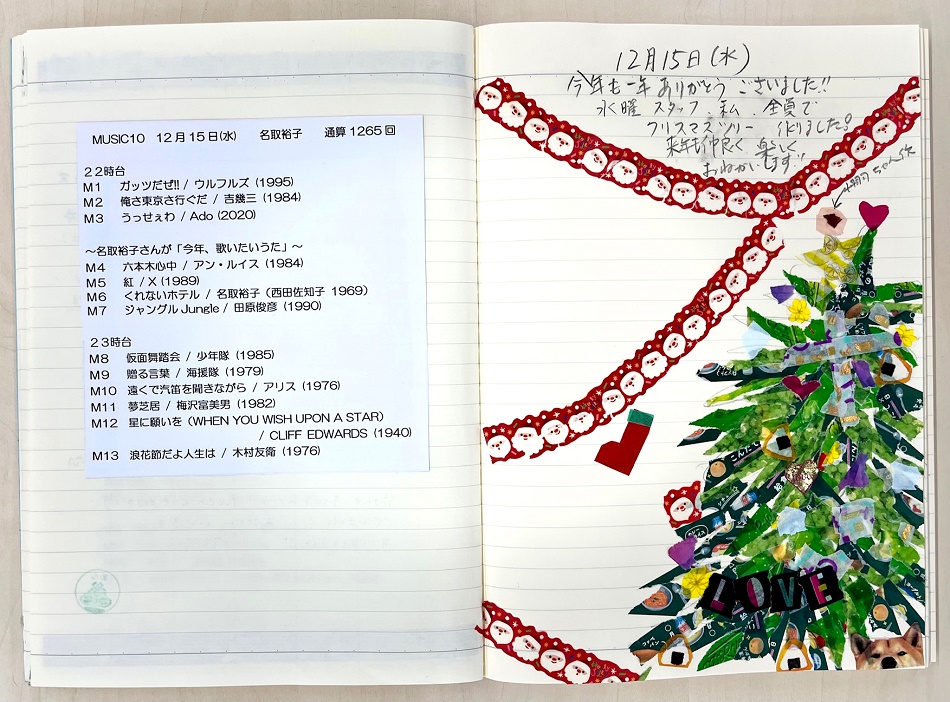 MUSIC10 12月15日(水) 名取裕子 通算1265回
22時台
M1 ガッツだぜ!! / ウルフルズ (1995)
M2 俺さ東京さ行ぐだ / 吉幾三 (1984)
M3 うっせぇわ / Ado (2020)
～名取裕子さんが「今年、歌いたいうた」～
M4 六本木心中 / アン・ルイス (1984)
M5 紅 / X (1989)
M6 くれないホテル / 名取裕子 (西田佐知子 1969)
M7 ジャングルJungle / 田原俊彦 (1990)
23時台
M8 仮面舞踏会 / 少年隊 (1985)
M9 贈る言葉 / 海援隊 (1979)
M10 遠くで汽笛を聞きながら / アリス (1976)
M11 夢芝居 / 梅沢富美男 (1982)
M12 星に願いを (WHEN YOU WISH UPON A STAR)
/ CLIFF EDWARDS (1940)
M13 浪花節だよ人生は / 木村友衛 (1976)
12月15日(水)
今年も一年ありがとうございました!!
水曜スタッフ、私、全員で
クリスマスツリー作りました。
来年も仲良く楽しく
おねがいします!!
ちゃん作
こんだ
LOVE